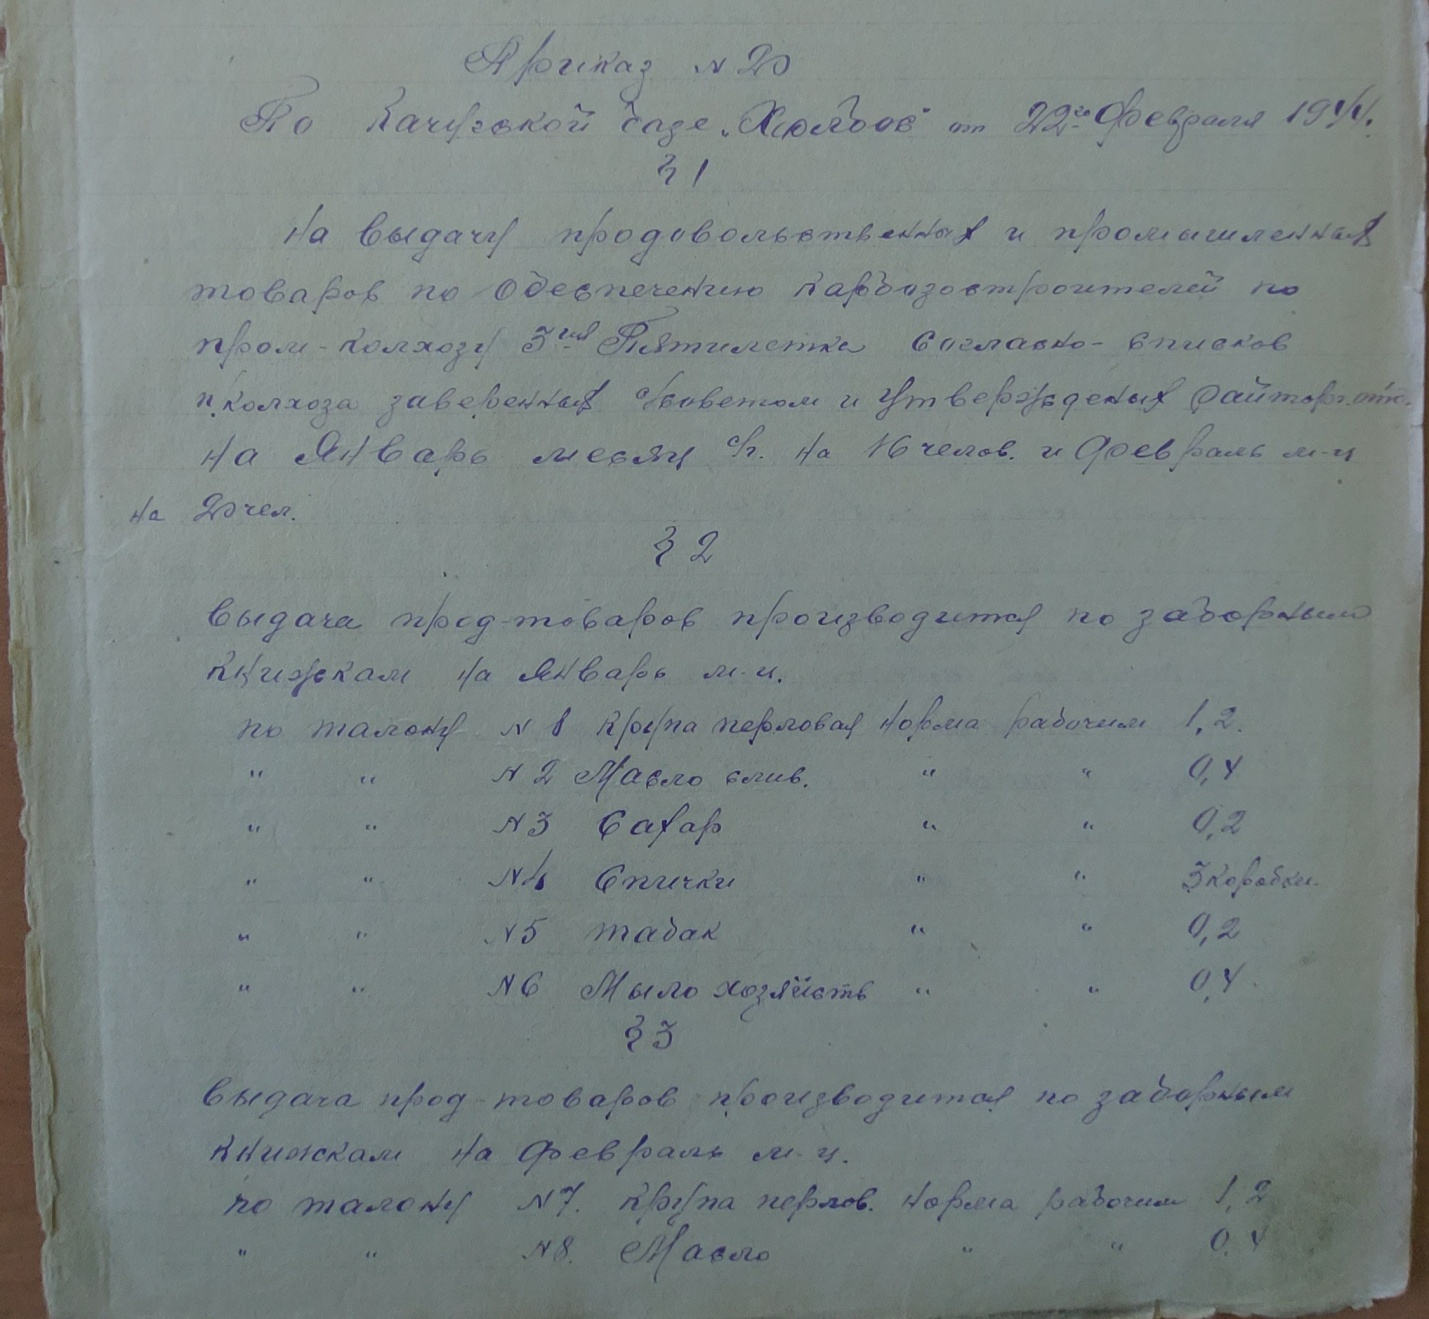 Приказ N 20
По Качугской базе "Холбос" от 22го февраля 1944.
§ 1
На выдачу продовольственных и промышленных
товаров по Обеспечению карбазостроителей по
пром-колхозу 3ия Пятилетка согласно- списков
п/колхоза заверенных с/советом и Утвержденых райторготд.
на Январь месяц с/г. на 16 челов. и февраль м-ц
на 20 чел.
§ 2
Выдача прод-товаров производится по заборным
книжкам на Январь м-ц.
по талону N 1 Крупа перловая норма рабочим 1,2.
" " N 2 Масло слив. " " 0,4
" " N 3 Сахар " " 0,2
" " N 4 Спички " " 3 коробки.
" " N 5 табак " " 0,2
" " N 6 Мыло хозяйств " " 0,4
§ 3
Выдача прод-товаров производится по заборным
книжкам на февраль м-ц.
по талону N 7. Крупа перлов. норма рабочим 1,2
" " N 8. Масло " " 0,4